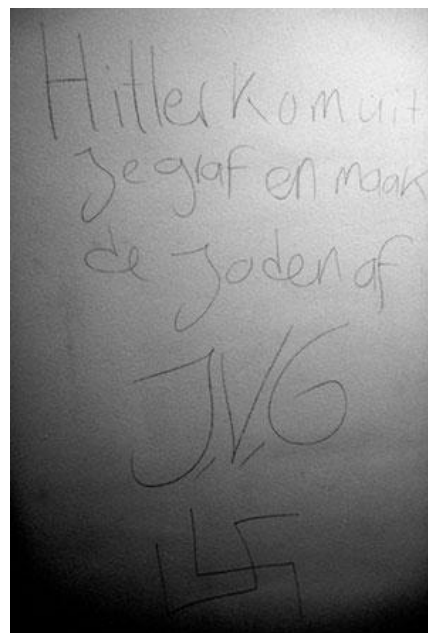 Hitler kom uit
je graf en maak
de Joden af
J.V.G